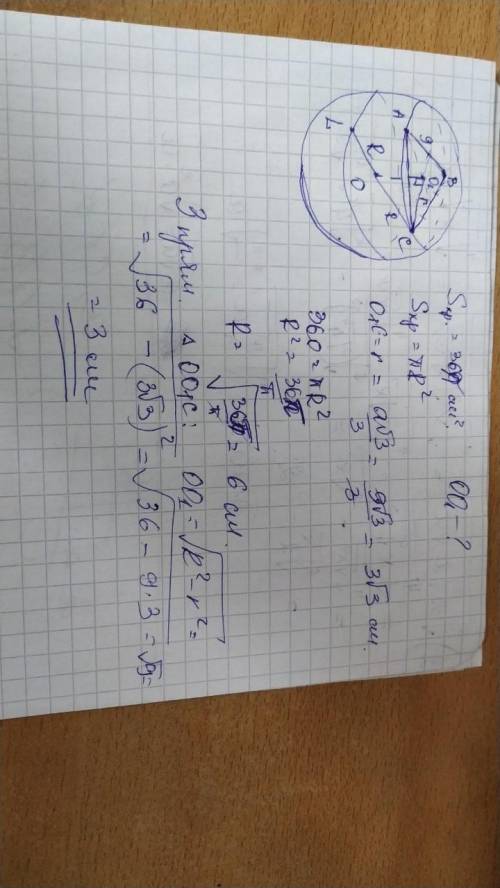 Sкр. = 36π см². OO₁ - ?
Sкр = πR²
O₁C = r = a√3/3 = 9√3/3 = 3√3 см.
36π = πR²
R² = 36π/π
R = √36π/π = 6 см.
З прям. Δ OO₁C: OO₁ = √R² - r² =
= √36 - (3√3)² = √36 - 9·3 = √9 =
= 3 см
A
B
C
L
O
O₁
R
R
9
r